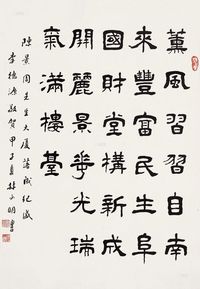 薰風習習自南
來豐富民生阜
國財堂構新成
開麗景華光瑞
氣滿樓臺
陳景周先生大廈落成紀盛
李德源敬賀甲子春林千明書